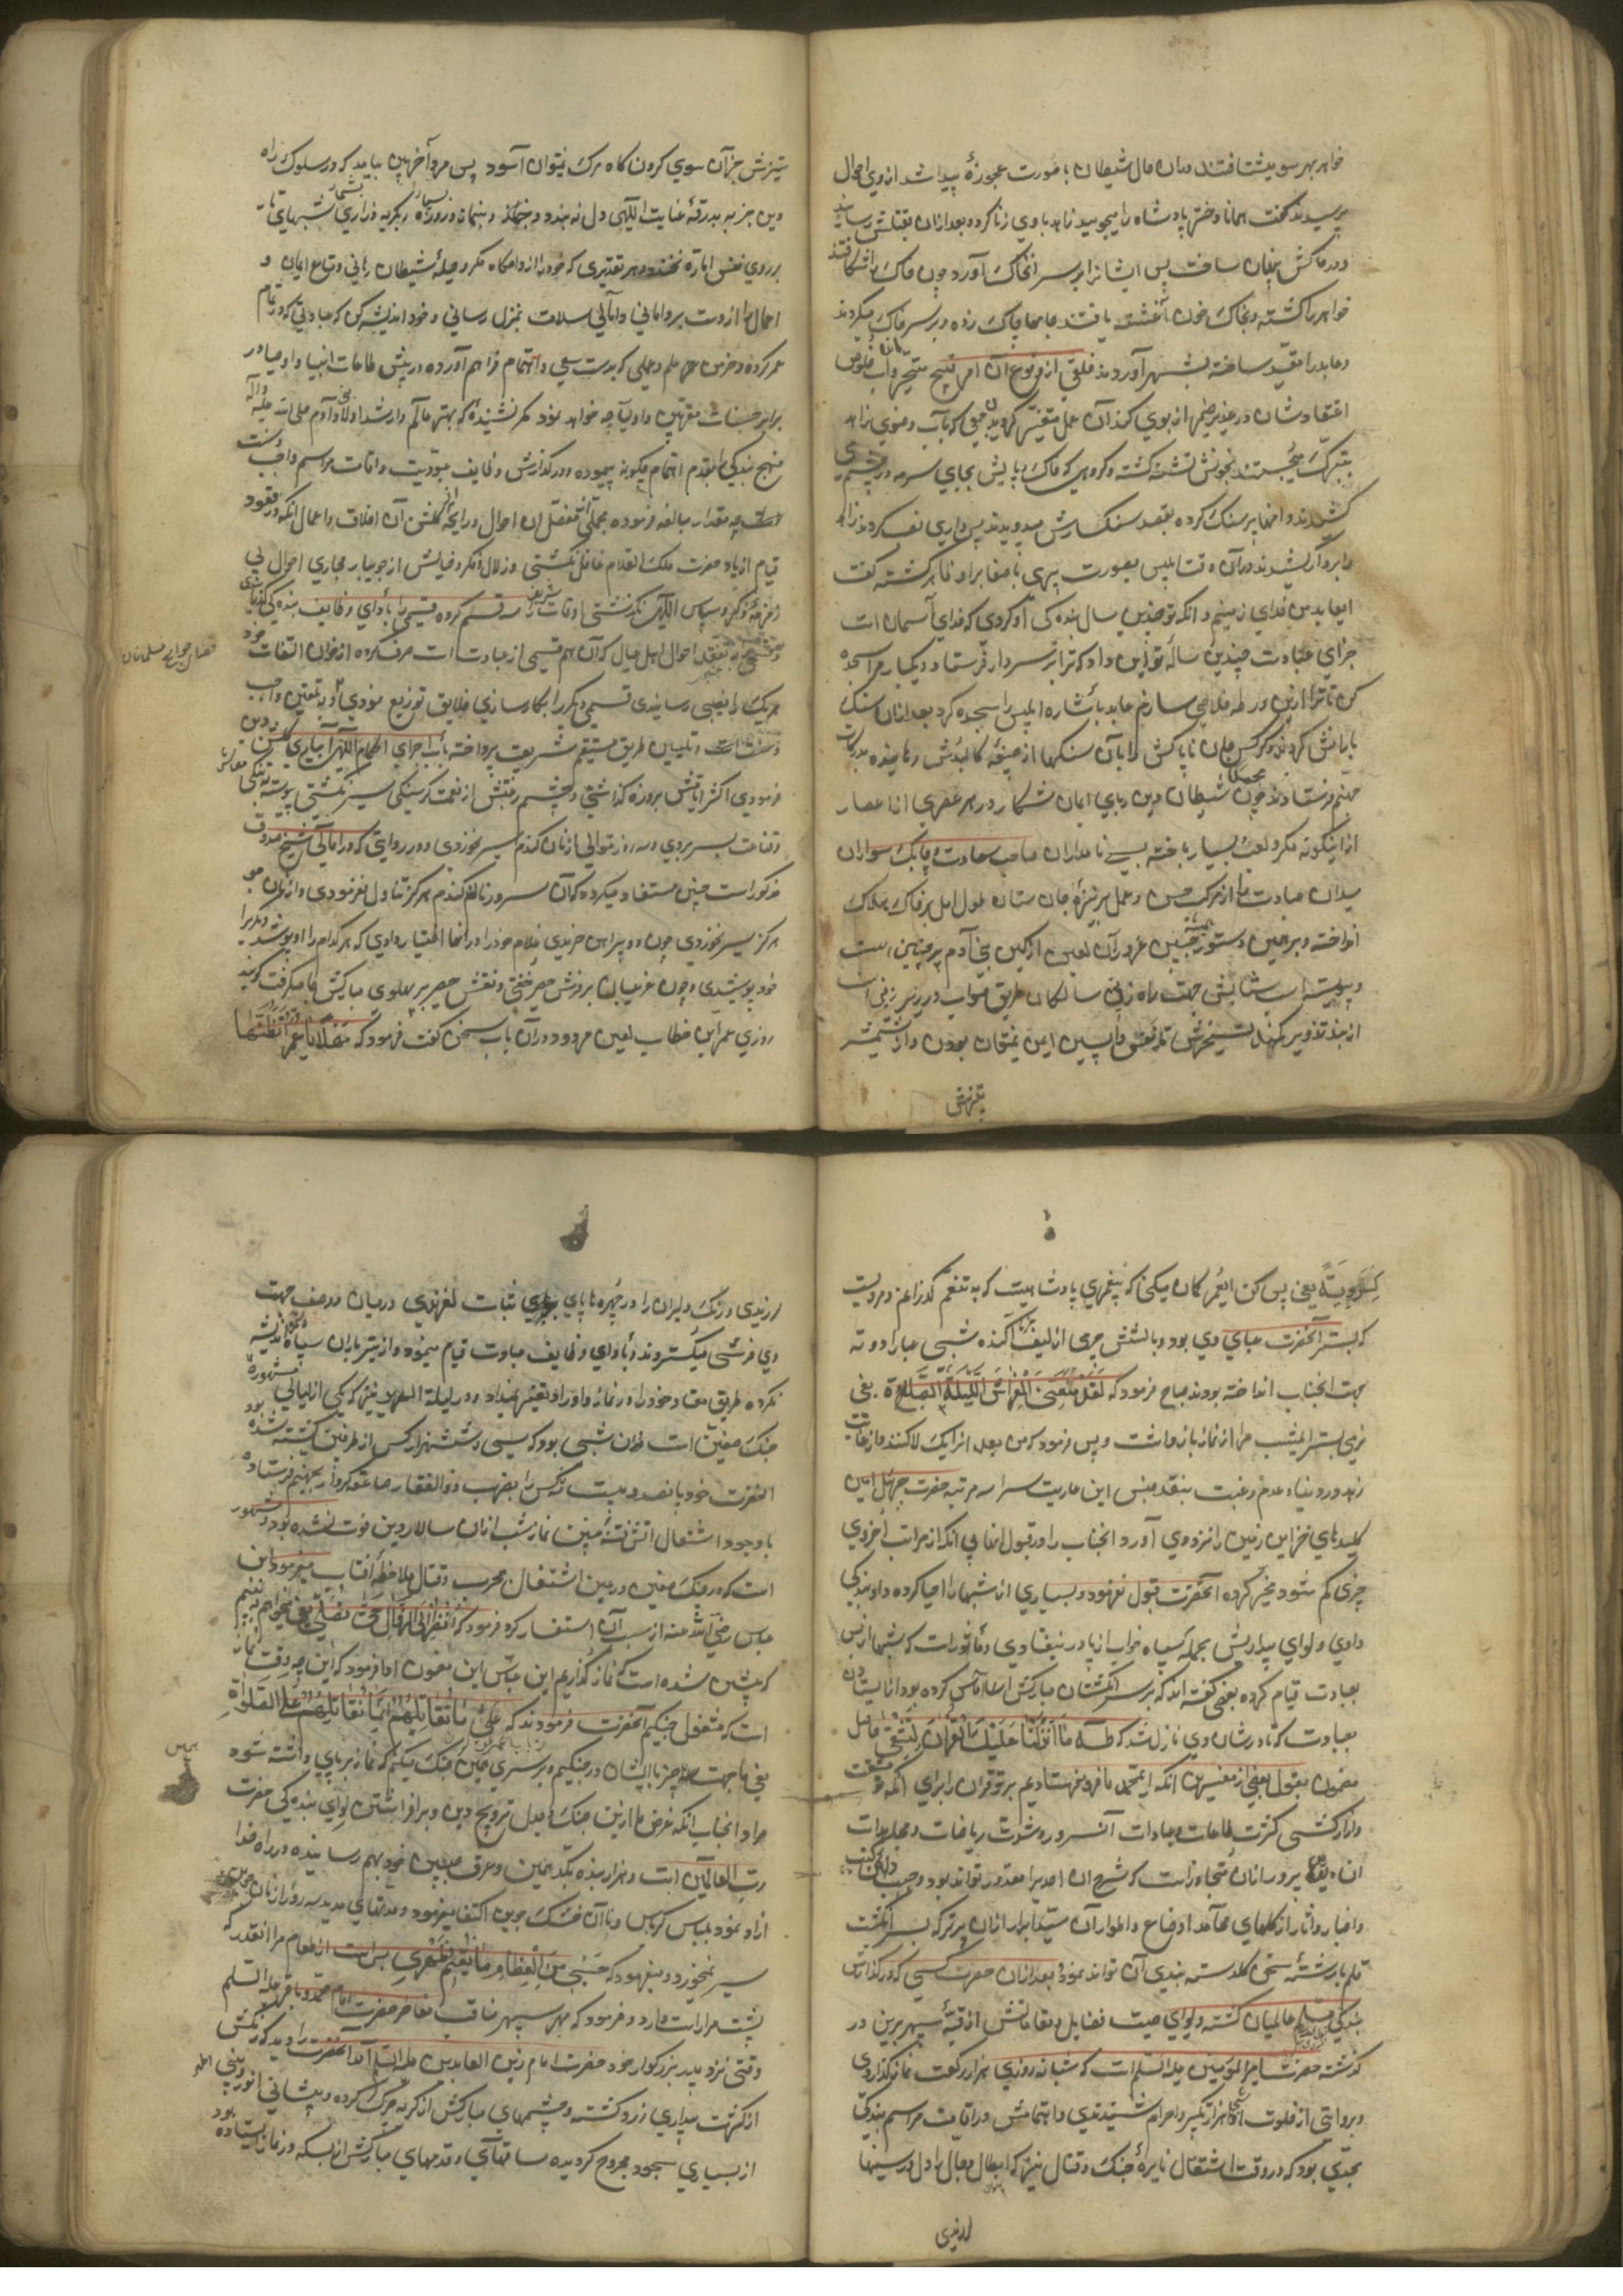 خواهر بهر سو میشتافتند در آن حال شیطان بصورت عجوزهٔ پیدا شد از وی احوال
پرسیدند گفت همانا دختر پادشاه را میجویید زاهد با وی زنا کرده و بعد از آن بقتلش رسانیده
و در خاکش پنهان ساخت پس ایشانرا بر سر آنخاک آورد چون خاک را شکافتند
خواهر را کشته و بخاک و خون آغشته یافتند جامها چاک زده و بر سر خاک میکردند
و عابد را مقید ساخته بشهر آوردند خلقی از وقوع آن امر قبیح متحیر و آب خلوص
اعتقادشان در غدیر ضمیر از بوی گند آن عمل متغیر گردید جمعی که بآب وضوی زاهد
تبرک میجستند بخونش تشنه گشته و گروهی که خاک پایش بجای سرمه در چشم می
کشیدند دامنها پر سنگ کرده بقصد سنگسارش میدویدند پس داری نصب کردند زاهد
را بر دار کشیدند در آن وقت ابلیس بصورت پیری با صفا بر او ظاهر گشته گفت
ای عابد من خدای زمینم و آنکه تو چندین سال بندگی او کردی که خدای آسمان است
جزای عبادت چندین ساله تو این داد که ترا بر سر دار فرستاد و یکبار مرا سجده
کن تا ترا ازین ورطه خلاصی سازم عابد باشاره ابلیس را سجده کرد بعد از آن سنگ
بارانش کردند و کرکس جان ناپاکش را بآن سنگها از جیفهٔ کالبدش رهانیده بدرکات
جهنم فرستادند چون شیطان دین ربای ایمان شکار در هر عصری از اعصار
ازینگونه مکر و لعب بسیار باخته بسی نامداران صاحب سعادت و چابک سواران
میدان عبادت را از مرکب حسن عمل بر نیزهٔ جان ستان طول امل بر خاک هلاک
انداخته و بر همین دستور جبین غرور آن لعین از کین بنی آدم پرچین است
و پیوسته اسب شتابش جهت راه زدن سالکان طریق صواب در زیر زین است
از بند تزویر کمند تسخیرش تا نفس واپسین ایمن نتوان بودن و از شمشیر
تیزش
ستیزش جز آن سوی گردن گاه مرگ نتوان آسود پس مرد آخر بین باید که در سلوک راه
دین جز به بدرقهٔ عنایت الهی دل نه بندد
بر روی نفس اماره نخندد بهر تقدیری که خود را از دامگاه مکر و حیلهٔ شیطان رهانی و متاع ایمان و
اعمال را از دست برد امانی و آمالی سلامت بمنزل رسانی و خود اندیشه کن که عبادتی که در تمام
عمر کرده و خرمن علم و عملی که بدست سعی و اهتمام فراهم آورده در پیش طاعات انبیا و اوصیا در
برابر حسنات مقربین و اولیا چه خواهد بود مگر نشنیدهٔ که بهتر عالم و ارشد اولاد بنی آدم صلی الله علیه و آله
منهج بندگی را بقدم اهتمام چگونه پیموده و در گذارش وظایف عبودیت و اقامت مراسم واجب و سنت
چه مقدار مبالغه فرموده مجملی از تفصیل آن احوال و رایحهٔ از گلشن آن اخلاق و اعمال آنکه در قعود
قیام از یاد حضرت ملک العلام غافل نگشتی و زلال ذکر و فیایش از جویبار مجاری احوال بی
زمزمهٔ ذکر و سپاس الهی نگذشتی اوقات شریفش را سه قسم کرده قسمی را بادای وظایف بندگی گذرانیدی
و قسمی به تفقد احوال اهل و عیال که آن هم قسمی از عبادتست صرف کرده از خوان التفات خود
هر یک را نصیبی رسانیدی قسمی دیگر را بکارسازی خلایق توزیع نمودی و به تلقین واجب
و سنت و تبیین طریق مستقیم شریعت پرداخته بآب اجرای احکام الهی آبیاری گلشن دین
فرمودی اکثر ایامش بروزه گذاشتی و چشم رغبتش از نعمت گرسنگی سیر نگشتی پیوسته به تنگی معاش
و قناعت بسر بردی و سه روز متوالی از نان گندم سیر نخوردی و در روایتی که در امالی شیخ صدوق
مذکور است چنین مستفاد میگردد که آن سرور نان گندم هرگز تناول نفرمودی و از نان جو
هرگز سیر نخوردی چون دو پیراهن خریدی غلام خود را در آنها اختیار دادی که هر کدام را او پوشد دیگر را
خود پوشیدی و چون عریان بر روی حصیر خفتی و نقش حصیر بر پهلوی مبارکش جا میگرفت گویند
روزی عمر ابن خطاب لعین مردود در آن باب سخن گفت فرمود که مَهْلًا یا عُمَر اَتَظُنُّها
کِسْرَوِیَّةً یعنی پس کن ای عمر گمان میکنی که پیغمبری پادشاهیست که به تنعم گذرانم و مرویست
که بستر آنحضرت عبای وی بود و بالشش چرمی از لیف خرما آکنده شبی عبا را دو ته
جهت آنجناب انداخته بودند صباح فرمود که لَقَدْ مَنَعَنِی الْفِراشُ اللَّیْلَةَ الصَّلوٰة یعنی
نرمی بستر امشب مرا از نماز باز داشت و پس فرمود که من بعد آنرا یک لا کنند و از غایت
زهد در دنیا و عدم رغبت بنقد و جنس این عاریت سرا سه مرتبه حضرت جبرئیل امین
کلیدهای خزاین زمین را نزد وی آورد و آنجناب را در قبول آنها بی آنکه از مراتب اخروی
چیزی کم شود مخیر گردانیده آنحضرت قبول نفرمود و بسیاری از شبها را احیا کرده داد بندگی
دادی و لوای بیداریش بحملهٔ سپاه خواب از پا در نیفتادی و ماثور است که شبها از بس
بعبادت قیام کرده بعضی گفته اند که بر سر انگشتان مبارکش آماس کرده بود از ایستادن
بعبادت که تا در شان وی نازل شد که طه مَا اَنْزَلْنا عَلَیْکَ الْقُرْآنَ لِتَشْقیٰ حاصل
مضمون بقول بعضی از مفسرین آنکه ای محمد ما فرو نفرستادیم بر تو قرآن را برای آنکه مشقت
و آزار کشی کثرت طاعات و عبادات آنسرور و شدت ریاضات و مجاهدات
آن دین پرور از آن متجاوز است که شرح آن احدی را مقدور تواند بود
و اخبار و آثار از گلهای محامد اوضاع و اطوار آن سید ابرار از آن پرتر که بسر انگشت
قلم با رشتهٔ سخن گلدسته بندی آن تواند نمود بعد از آن حضرت کسی که در گذارش
بندگی مسلم عالمیان گشته و لوای صیت فضایل و مقاماتش از قبهٔ سپهر برین در
گذشته حضرت امیر المؤمنین علیه السلام است که شبانه روزی هزار رکعت نماز گذاردی
و بروایتی از خلوت آنجناب هزار تکبیر احرام شنیدندی و اهتمامش در اقامت مراسم بندگی
بحدی بود که در وقت اشتعال نایرهٔ جنگ و قتال نیز که ابطال رجال را دل در سینها
لرزیدی
لرزیدی و رنگ دلیران را در چهره ها پای ثبات لغزیدی در میان دو صف جهت
وی فرشی میگستردند و بادای وظایف عبادت قیام مینمود و از تیر باران سپاه اندیشه
نکرده طریق معتاد خود را در نماز و اوراد تغییر نمیداد و در لیلة الهریر نیز که یکی از لیالی مشهورهٔ
جنگ صفین است و آن شبی بود که سی و شش هزار کس از طرفین کشته شده بود
آنحضرت خود پانصد و بیست و سه کس را بضرب ذوالفقار صاعقه کردار بجهنم فرستاده
با وجود اشتعال آتش فتنهٔ چنین نماز شب از آن سالار دین فوت نشده بود و مشهور
است که در جنگ صفین در عین اشتغال بحرب و قتال ملاحظهٔ آفتاب میفرمود ابن
عباس رضی الله عنه از سبب آن استفسار کرد فرمود که اُنْظُرُ اِلَی الزَّوالِ حَتّیٰ نُصَلِّیَ یعنی میخواهم که ببینم
که پیشین شده است که نماز گذاریم ابن عباس این مضمون ادا فرمود که این چه وقت نماز
است که مشغول جنگیم آنحضرت فرمودند که عَلیٰ مَا نُقاتِلُهُمْ اِنَّما نُقاتِلُهُمْ عَلَی الصَّلوٰةِ
یعنی ما جهت چه چیز با ایشان در جنگیم و بر سر همین جنگ میکنیم که نماز بر پای داشته شود
مراد آنجناب آنکه غرض ما ازین جنگ و جدل ترویج دین و بر افراشتن لوای بندگی حضرت
رب العالمین است و هزار بنده بکد یمین و عرق جبین خود بهم رسانیده در راه خدا
آزاد نمود بلباس کرباس و نان خشک جوین اکتفا میفرمود
سیر نمیخورد و میفرمود که حَسْبی مِنَ الْعِظامِ مَا یُقیمُ ظَهْری بس است از طعام مرا آنقدر که
پشت مرا راست دارد و فرمود که مهر سپهر مناقب و مفاخر حضرت امام محمد باقر علیه السلام
وقتی نزد پدر بزرگوار خود حضرت امام زین العابدین علیه السلام آمد آنحضرت را دید که رنگش
از کثرت بیداری زرد گشته و چشمهای مبارکش از گریه چرک کرده و پیشانی انور و بینی اطهر
از بسیاری سجود مجروح گردیده ساقهای و قدمهای مبارکش از بسکه در نماز ایستاده بود